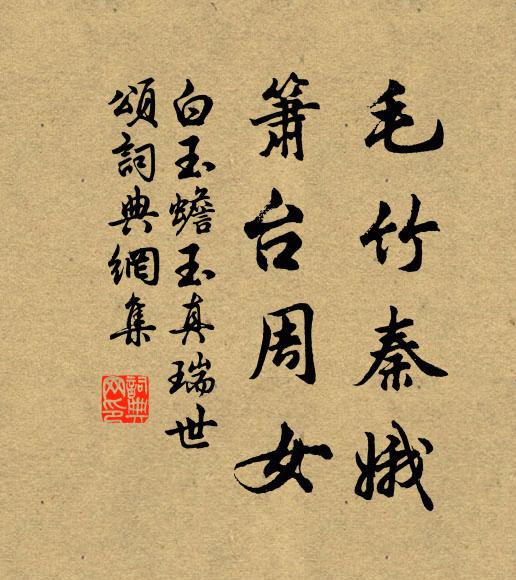 毛竹秦娥
簫台周女
白玉蟾玉真瑞世
頌詞典網集
詞典網印